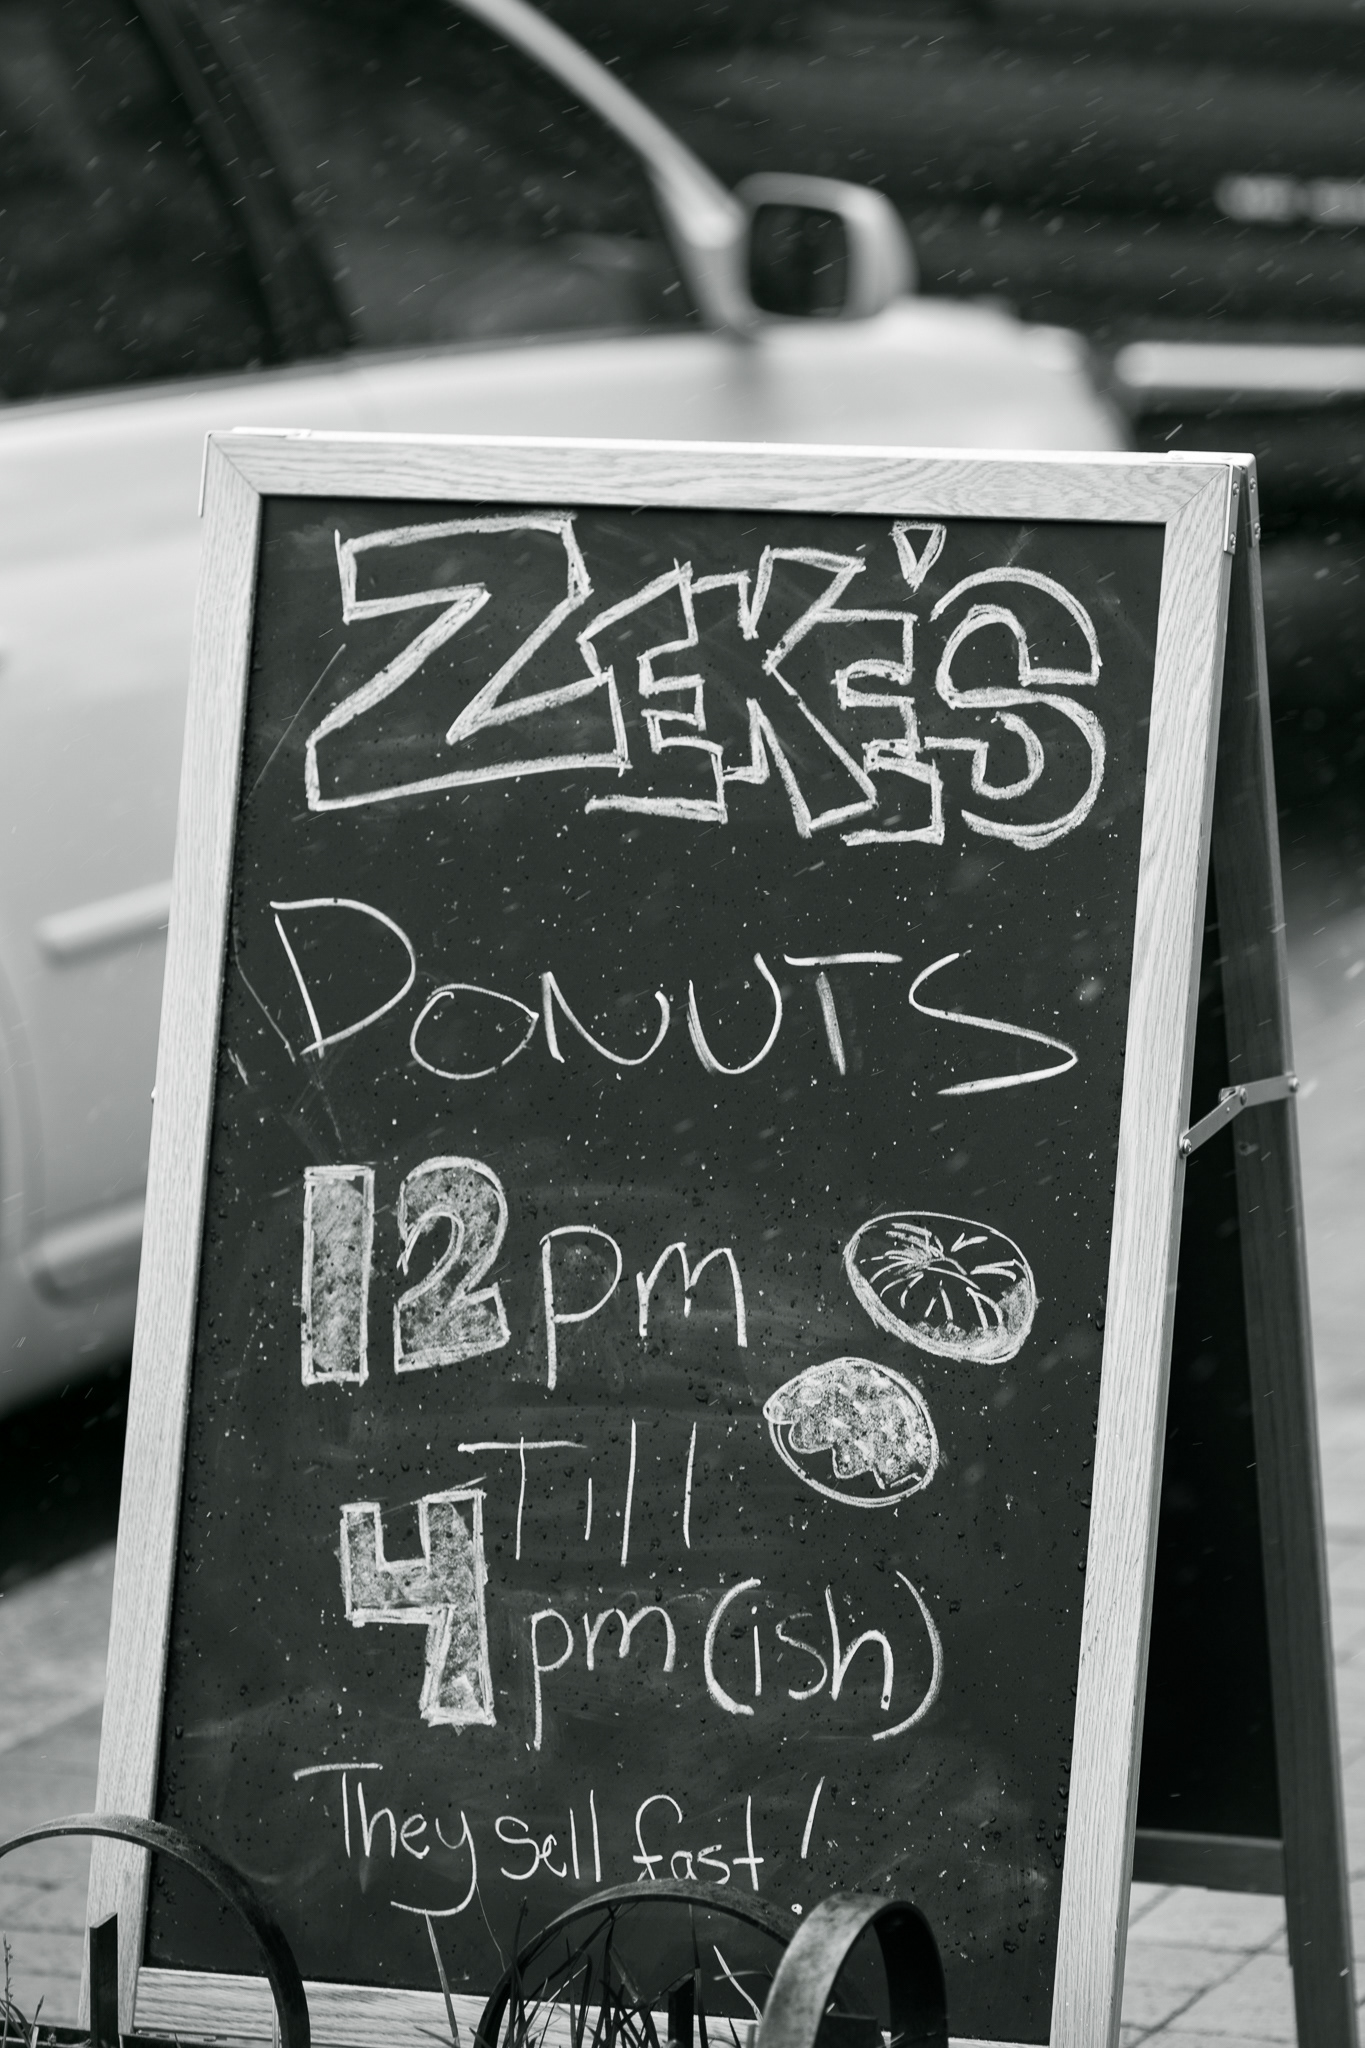 ZEKE'S
DONUTS
12pm
Till
4pm (ish)
They sell fast!